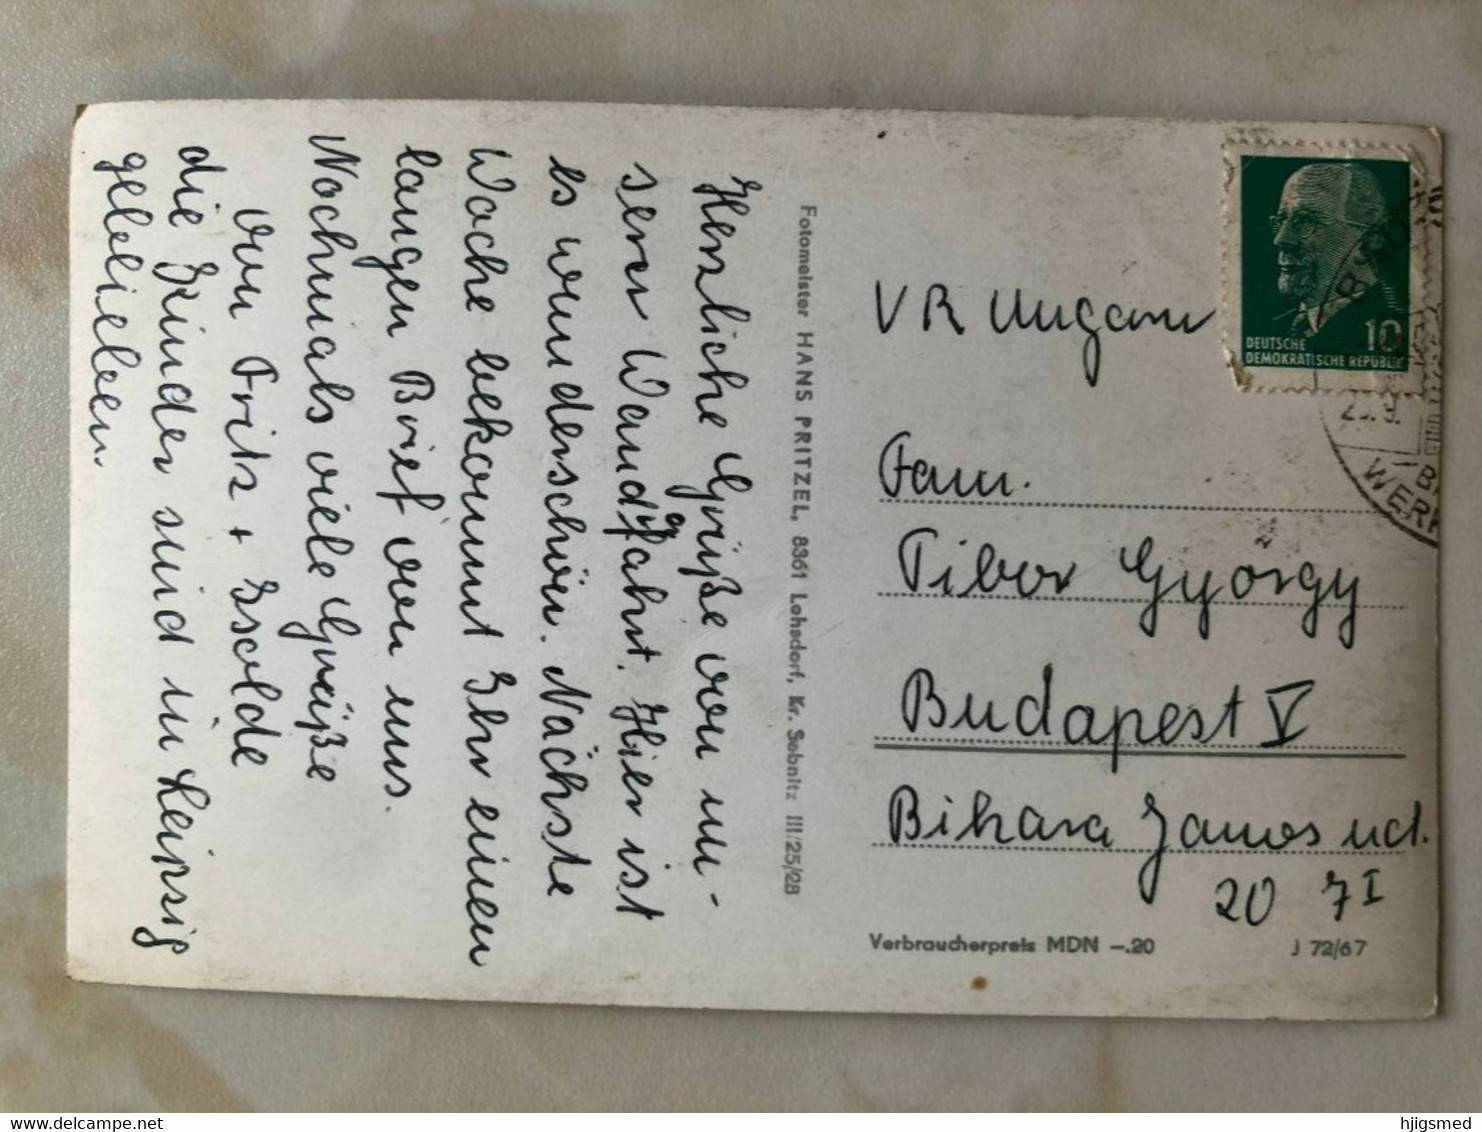 Herzliche Grüße von un-
serer Wandfahrt. Hier ist
es wunderschön. Nächste
Woche bekommt Ihr einen
langen Brief von uns.
Nochmals viele Grüße
von Fritz + Isolde
die Kinder sind in Leipzig
geblieben.
Fotomeister HANS PRITZEL, 8361 Lohsdorf, Kr. Sebnitz III/25/28
DEUTSCHE
DEMOKRATISCHE REPUBLIK
10
VR Ungarn
Fam.
Tibor György
Budapest V
Bihara Janos ut.
20 7 I
Verbraucherpreis MDN –.20
J 72/67
www.delcampe.net
hjigsmed